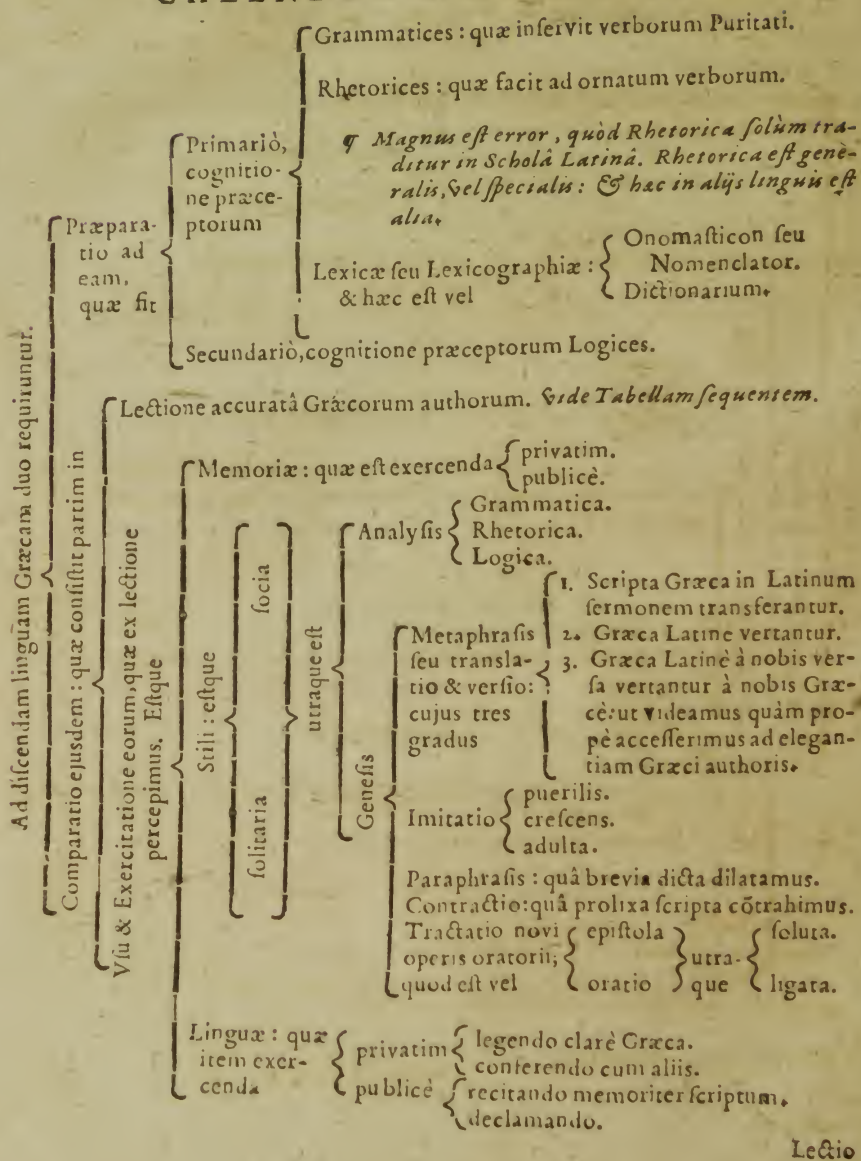 Ad discendam linguam Græcam duo requiruntur.
Præpara-
tio ad
eam,
quæ fit
Primariò,
cognitio-
ne præce-
ptorum
Grammatices : quæ inservit verborum Puritati.
Rhetorices : quæ facit ad ornatum verborum.
¶ Magnus est error, quòd Rhetorica solùm tra-
ditur in Scholâ Latinâ. Rhetorica est gene-
ralis, vel specialis : & hæc in alijs linguis est
alia.
Lexicæ seu Lexicographiæ :
& hæc est vel
Onomasticon seu
Nomenclator.
Dictionarium.
Secundariò, cognitione præceptorum Logices.
Comparatio ejusdem : quæ consistit partim in
Lectione accuratâ Græcorum authorum. Vide Tabellam sequentem.
Vsu & Exercitatione eorum, quæ ex lectione
percepimus. Estque
Memoriæ : quæ est exercenda
privatim.
publicè.
Stili : estque
socia
solitaria
utraque est
Analysis
Grammatica.
Rhetorica.
Logica.
Genesis
Metaphrasis
seu transla-
tio & versio:
cujus tres
gradus
1. Scripta Græca in Latinum
sermonem transferantur.
2. Græca Latine vertantur.
3. Græca Latinè à nobis ver-
sa vertantur à nobis Græ-
cè: ut videamus quàm pro-
pè accesserimus ad elegan-
tiam Græci authoris.
Imitatio
puerilis.
crescens.
adulta.
Paraphrasis : quâ brevia dicta dilatamus.
Contractio: quâ prolixa scripta cōtrahimus.
Tractatio novi
operis oratorii;
quod est vel
epistola
oratio
utra-
que
soluta.
ligata.
Linguæ : quæ
item exer-
cenda
privatim
legendo clarè Græca.
conferendo cum aliis.
publicè
recitando memoriter scriptum.
declamando.
Lectio